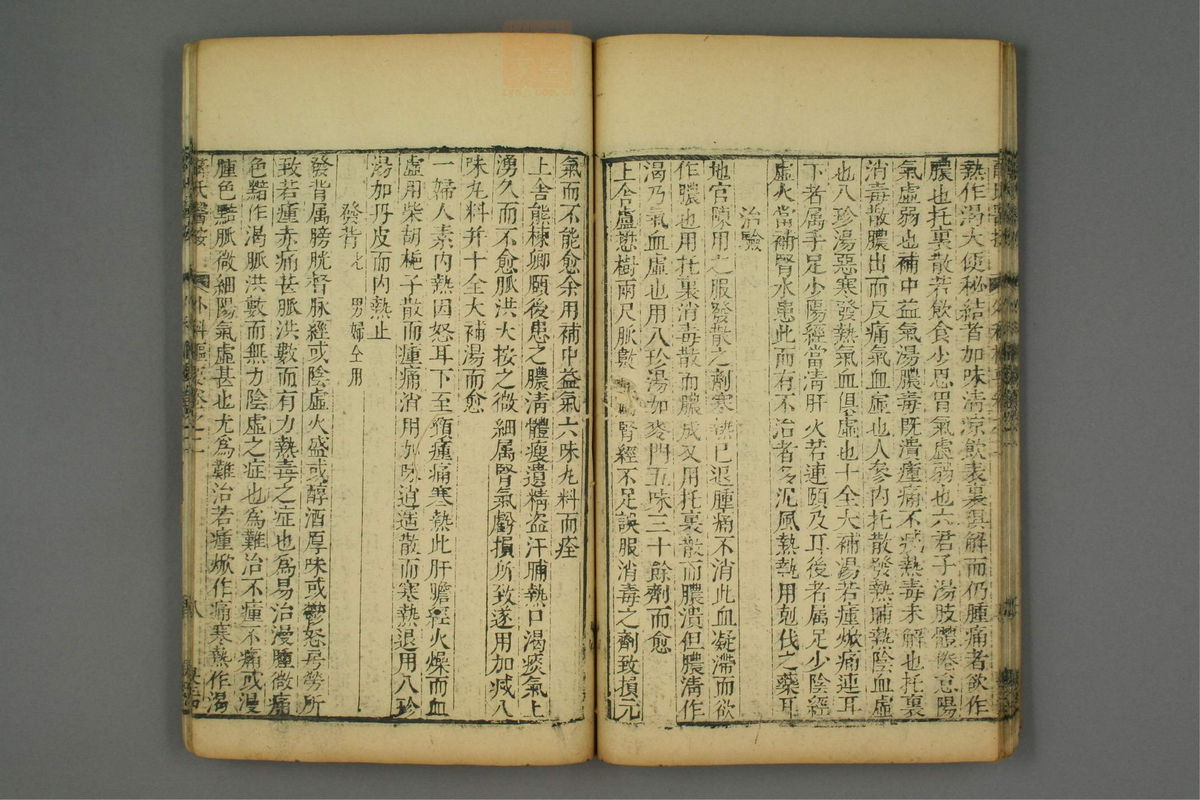 熱作渴大便秘結者加味清涼飲表裏俱解而仍腫痛者欲作
膿也托裏散若飲食少思胃氣虛弱也六君子湯肢體倦怠陽
氣虛弱也補中益氣湯膿毒既潰瘇痛不減熱毒未解也托裏
消毒散膿出而反痛氣血虛也人參內托散發熱晡熱陰血虛
也八珍湯惡寒發熱氣血俱虛也十全大補湯若瘇焮痛連耳
下者属手足少陽經當清肝火若連頤及耳後者属足少陰經
虛火當補腎水患此而有不治者多沉風熱執用剋伐之藥耳
治驗
地官陳用之服發散之劑寒熱已退腫痛不消此血凝滯而欲
作膿也用托裏消毒散而膿成又用托裏散而膿潰但膿清作
渴乃氣血虛也用八珍湯加麥門五味三十餘劑而愈
上舍盧懋樹兩尺脈數腎經不足誤服消毒之劑致損元
氣而不能愈余用補中益氣六味丸料而痊
上舍熊棟卿頤後患之膿清體瘦遺精盜汗晡熱口渴痰氣上
湧久而不愈脈洪大按之微細属腎氣虧損所致遂用加减八
味丸料并十全大補湯而愈
一婦人素內熱因怒耳下至頸瘇痛寒熱此肝膽經火燥而血
虛用柴胡梔子散而瘇痛消用加味逍遥散而寒熱退用八珍
湯加丹皮而內熱止
發背 男婦仝用
發背属膀胱督脉經或陰虛火盛或醇酒厚味或鬱怒房勞所
致若瘇赤痛甚脈洪數而有力熱毒之症也爲易治漫瞳微痛
色黯作渴脈洪數而無力陰虛之症也爲難治不瘇不痛或漫
腫色黯脈微細陽氣虛甚也尤爲難治若瘇焮作痛寒熱作渴
薛氏醫按 外科樞要卷之二 八